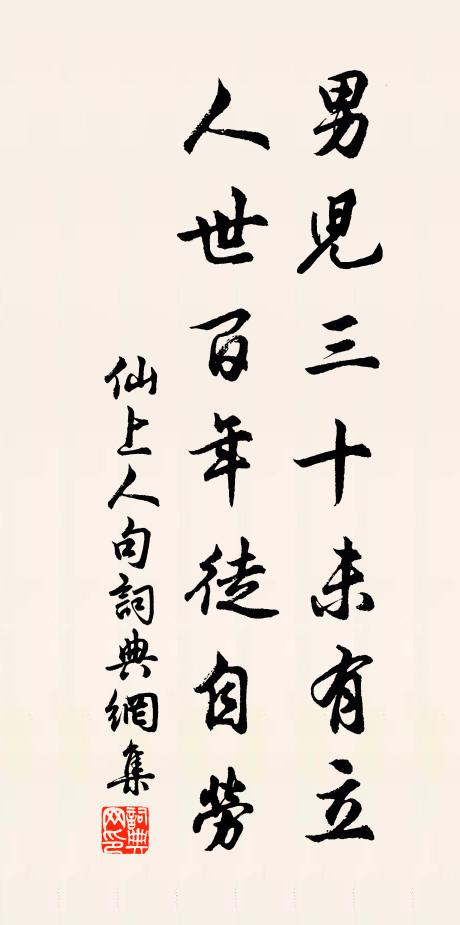 男児三十未有立
人世百年徒自勞
仙上人句詞典網集
詞典网印